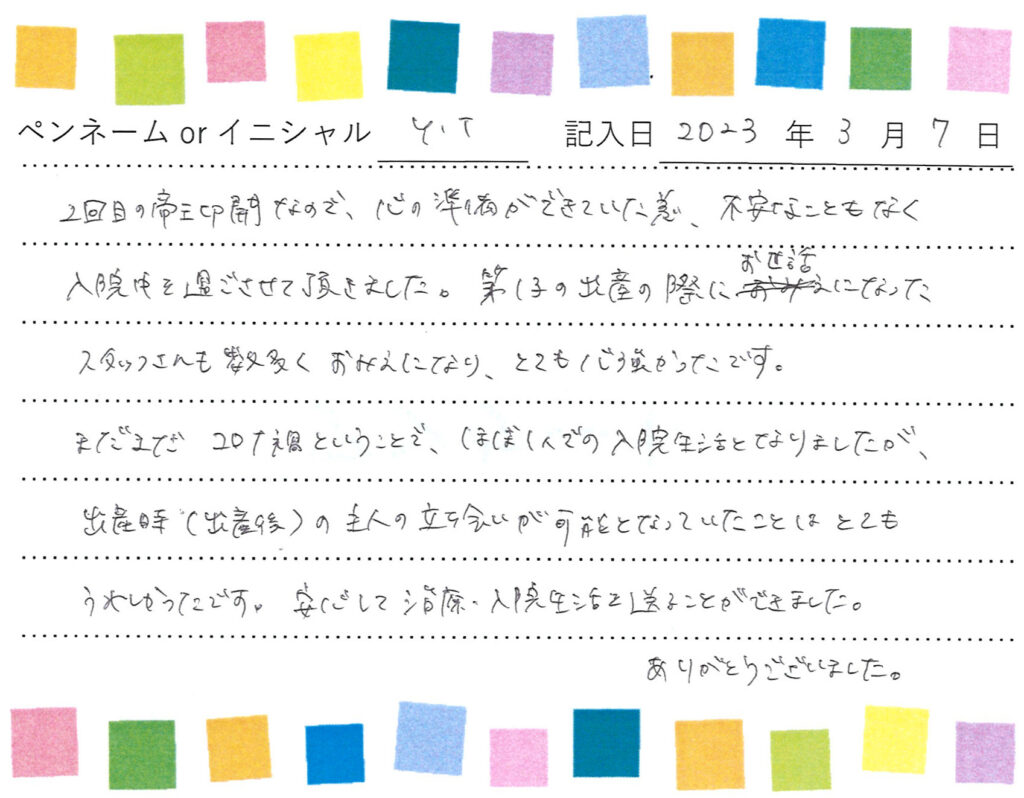 ペンネーム or イニシャル Y.T 記入日 2023 年 3 月 7 日
2回目の帝王切開なので、心の準備ができていた為、不安なこともなく
入院中を過ごさせて頂きました。第1子の出産の際にお世話になった
スタッフさんも数多くおみえになり、とても心強かったです。
まだまだ コロナ禍ということで、ほぼ1人での入院生活となりましたが、
出産時(出産後)の主人の立ち会いが可能となっていたことはとても
うれしかったです。安心して治療・入院生活を送ることができました。
ありがとうございました。